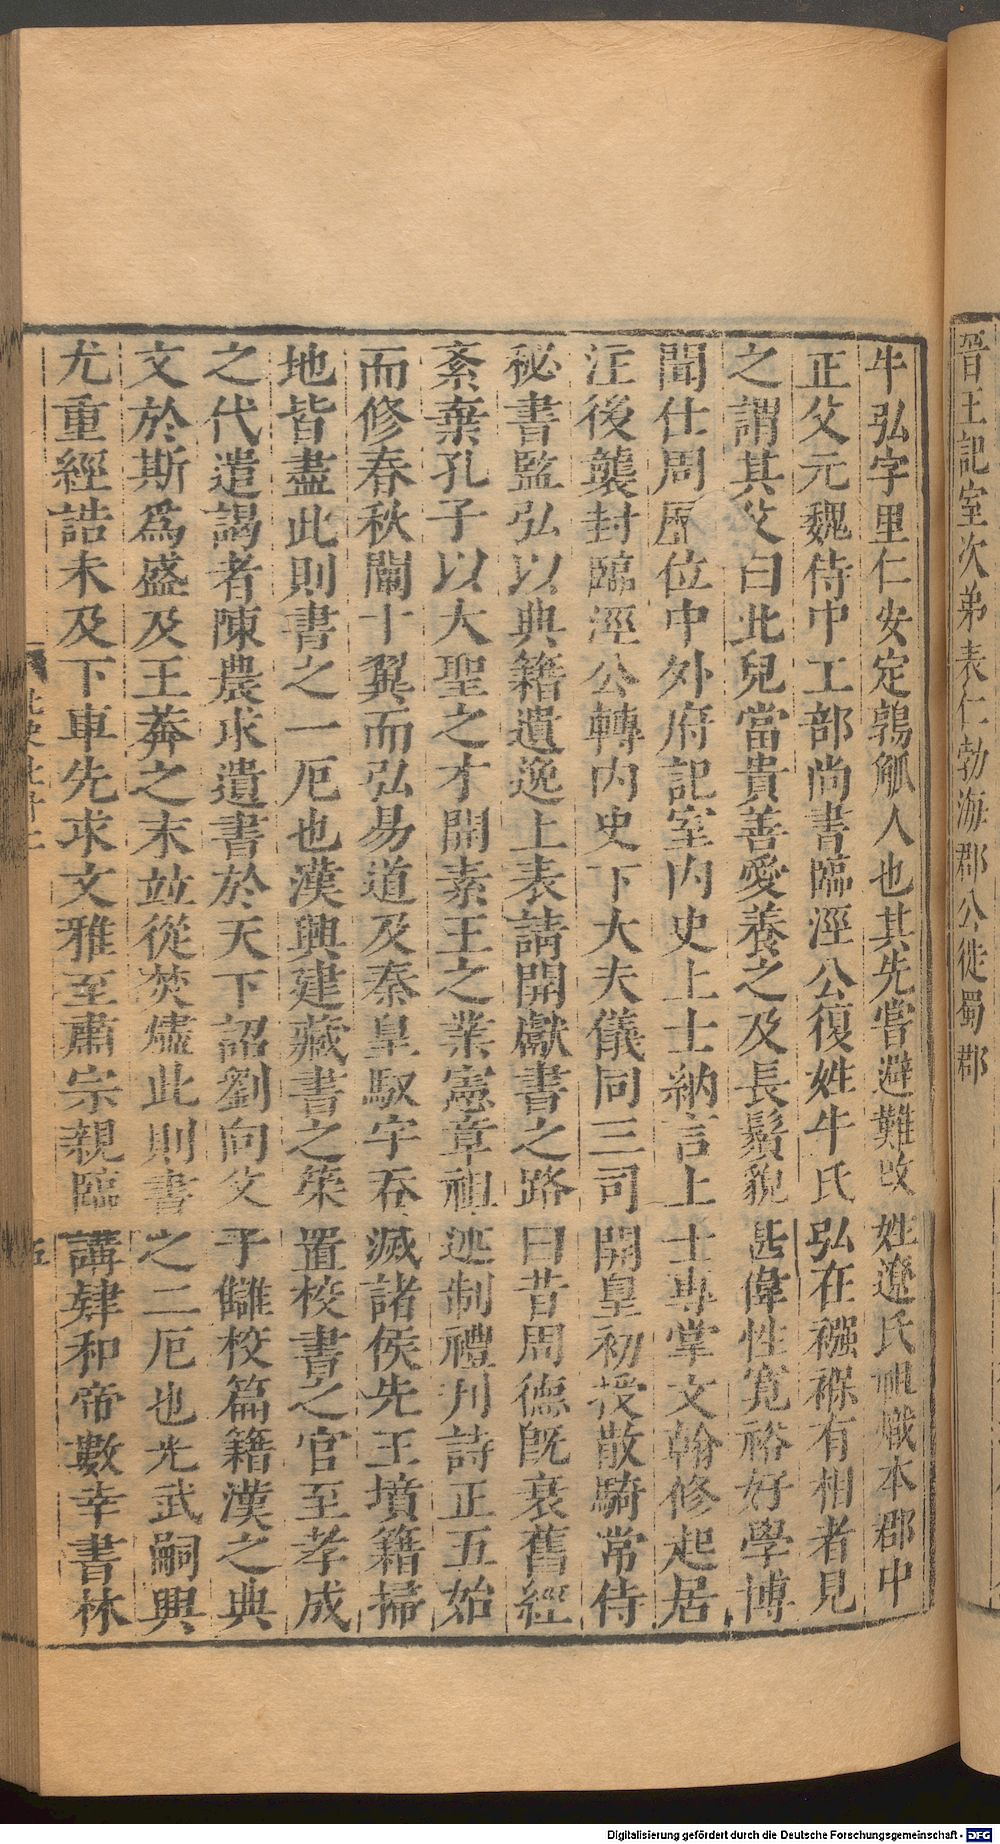 晉王記室次弟表仁勃海郡公徙蜀郡
牛弘字里仁安定鶉觚人也其先嘗避難改姓遼氏祖熾本郡中
正父元魏侍中工部尚書臨涇公復姓牛氏弘在襁褓有相者見
之謂其父曰此兒當貴善愛養之及長鬚貌甚偉性寬裕好學博
聞仕周歷位中外府記室內史上士納言上士專掌文翰修起居
注後襲封臨涇公轉內史下大夫儀同三司開皇初授散騎常侍
秘書監弘以典籍遺逸上表請開獻書之路曰昔周德既衰舊經
紊棄孔子以大聖之才開素王之業憲章祖述制禮刋詩正五始
而修春秋闡十翼而弘易道及秦皇馭宇吞滅諸侯先王墳籍掃
地皆盡此則書之一厄也漢興建藏書之策置校書之官至孝成
之代遣謁者陳農求遺書於天下詔劉向父子讎校篇籍漢之典
文於斯爲盛及王莽之末竝從焚燼此則書之二厄也光武嗣興
尤重經誥未及下車先求文雅至肅宗親臨講肄和帝數幸書林
五
Digitalisierung gefördert durch die Deutsche Forschungsgemeinschaft - DFG